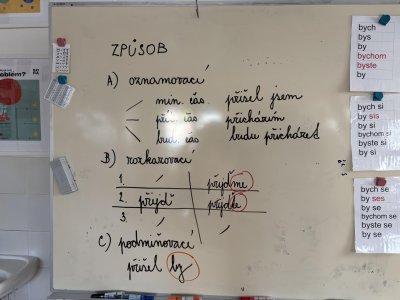 ZPŮSOB
A) oznamovací
min. čas přišel jsem
pří. čas přicházím
bud. čas budu přicházet
B) rozkazovací
1. / přijďme
2. přijď přijďte
3. / /
C) podmiňovací
přišel by
bych
bys
by
bychom
byste
by
bych si
by sis
by si
bychom si
byste si
by si
bych se
by ses
by se
bychom se
byste se
by se